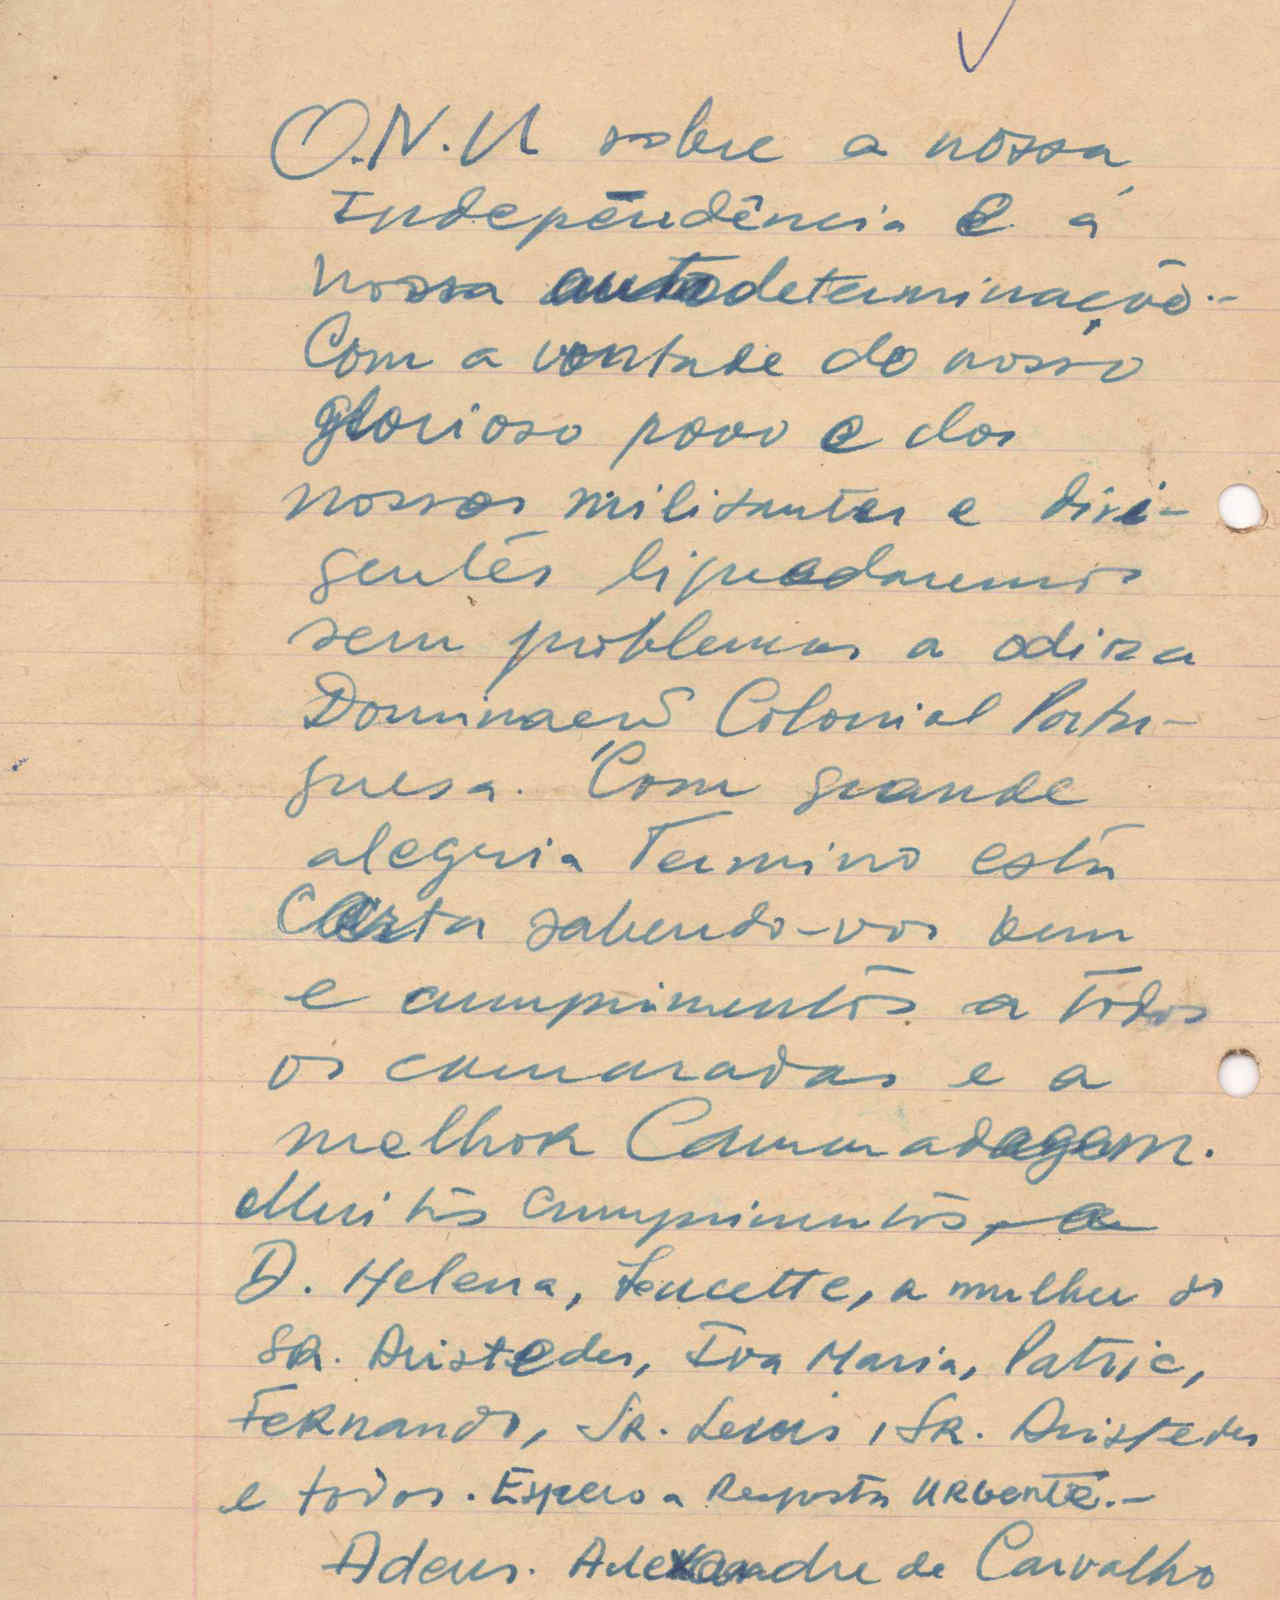 O.N.U sobre a nossa
Independência e á
nossa autodeterminação.-
Com a vontade do nosso
glorioso povo e dos
nossos militantes e diri-
gentes liquedaremos
sem problemas a odiosa
Dominação Colonial Portu-
guesa. Com grande
alegria Termino esta
Carta sabendo-vos bem
e cumprimentos a todos
os camaradas e a
melhor Camaradagem.
Muitos cumprimentos, a
D. Helena, Lucette, a mulher do
SR. Aristedes, Iva Maria, Patric,
Fernando, SR. Luis, SR. Aristedes
e todos. Espero a Resposta URGENTE.-
Adeus. Alexandre de Carvalho